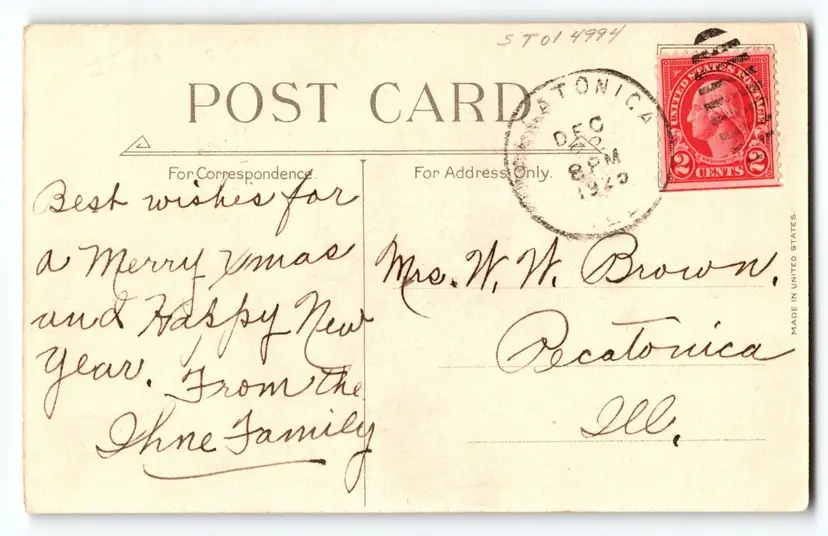 STO1 4994
POST CARD
For Correspondence.
For Address Only.
PECATONICA
DEC
8 PM
1925
ILL
UNITED STATES POSTAGE
WASHINGTON
2 CENTS 2
Best wishes for
a Merry Xmas
and Happy New
Year. From the
Ihne Family
Mrs. W. W. Brown.
Pecatonica
Ill.
MADE IN UNITED STATES.